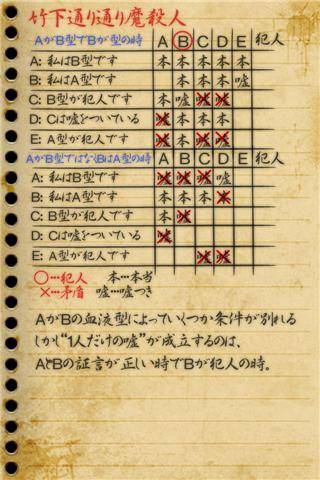 竹下通り通り魔殺人
AがB型でBが型の時 A B C D E 犯人
A: 私はB型です 本 本 本 本 本
B: 私はA型です 本 本 本 嘘
C: B型が犯人です 本 嘘 嘘 嘘
D: Cは嘘をついている 嘘 本 本 本
E: A型が犯人です 嘘 本 嘘 嘘
AがB型ではなくBはA型の時 A B C D E 犯人
A: 私はB型です 嘘 嘘 嘘 嘘
B: 私はA型です 本 本 本
C: B型が犯人です 本
D: Cは嘘をついている
E: A型が犯人です
○…犯人 本…本当
×…矛盾 嘘…嘘つき
AがBの血液型によっていくつか条件が別れる
しかし“1人だけの嘘”が成立するのは、
AとBの証言が正しい時でBが犯人の時。